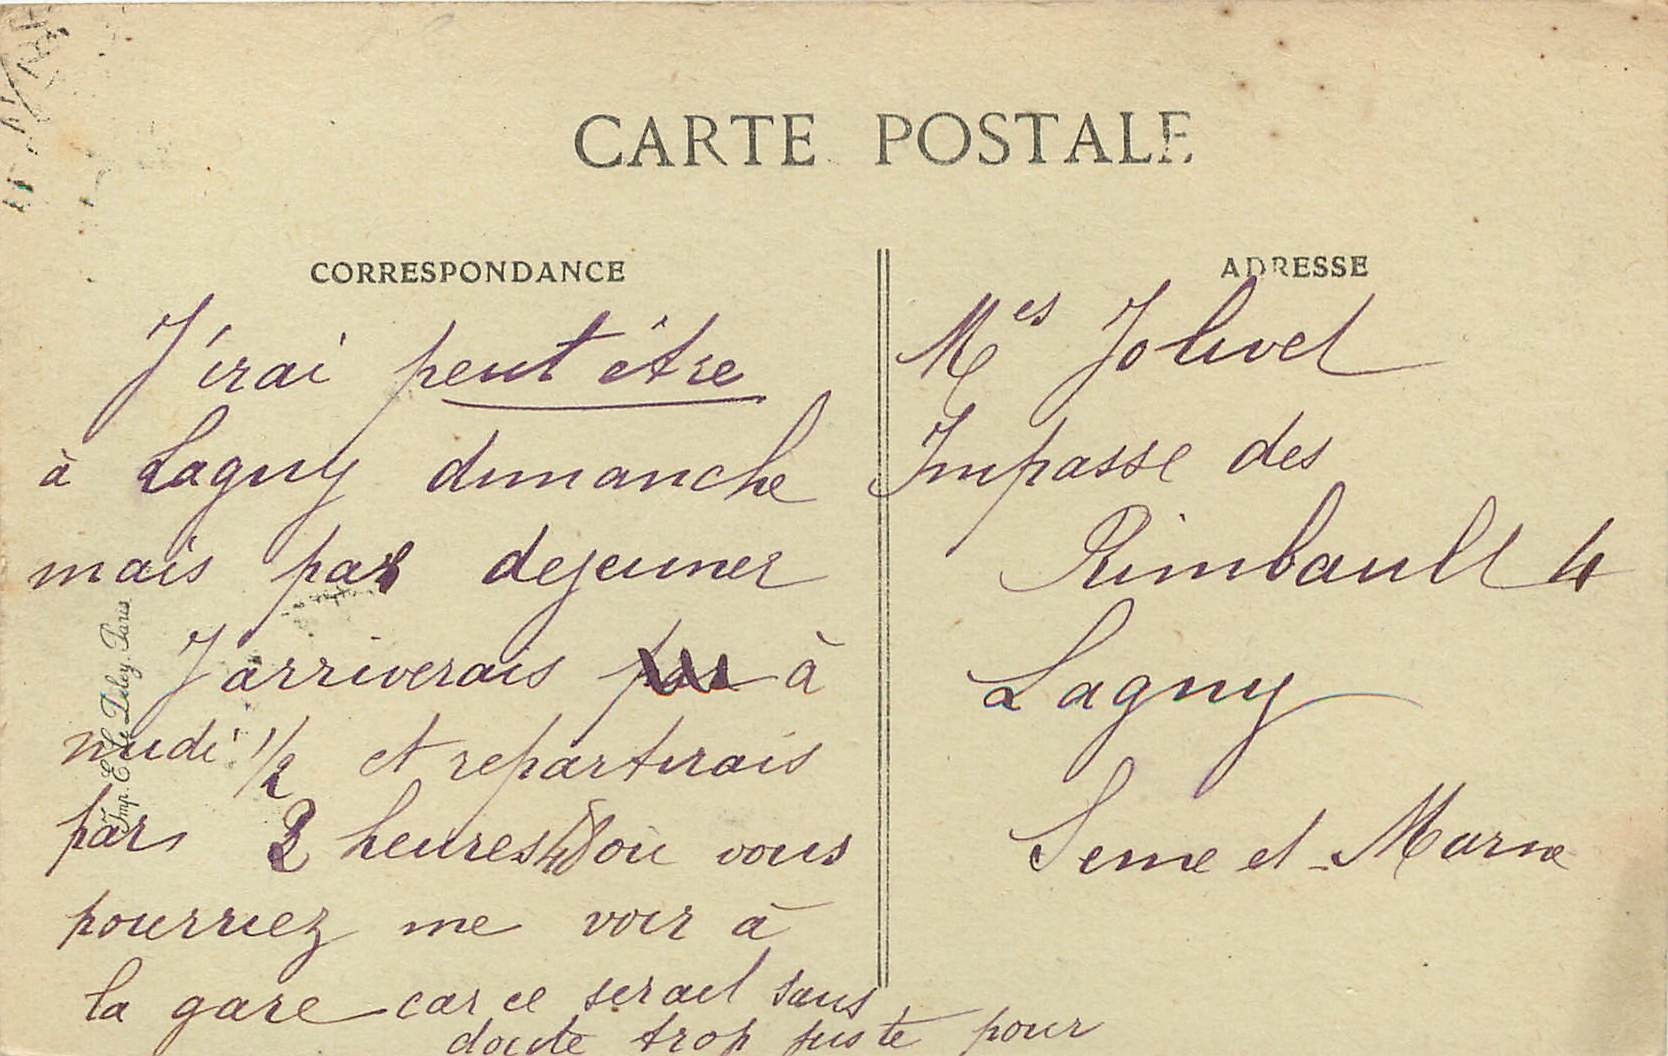 CARTE POSTALE
CORRESPONDANCE
J'irai peut être
à Lagny dimanche
mais pas dejeuner
J arriverais à
midi 1/2 et repartirais
par 2 heures 48 où vous
pourriez me voir à
la gare car ce serait sans
doute trop juste pour
Imp. E. Le Deley, Paris
ADRESSE
Mes Jolivet
Impasse des
Rimbault 4
Lagny
Seine et Marne